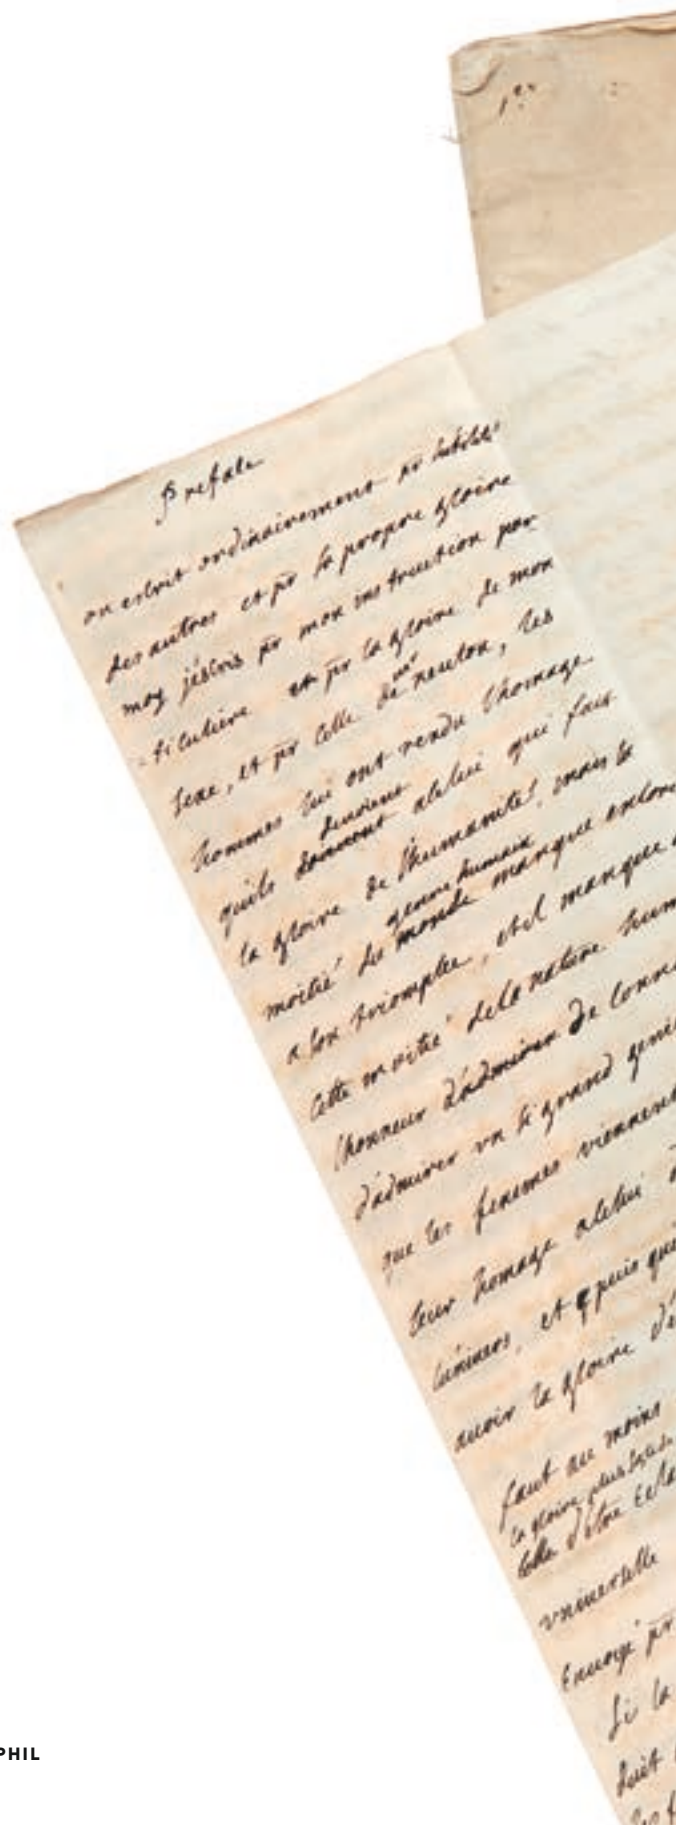 Preface
on escrit ordinairement pr lutilité
des autres et pr sa propre gloire
moy jescris pr mon instruction par
-ticuliere et pr la gloire de mon
sexe, et pr celle de mr neuton, les
hommes lui ont rendu lhomage
devoient
quils donnent acelui qui fait
la gloire de l'humanité, mais la
genre humain
moitié du monde manque encore
a son triomphe, et il manque a
cette moitié dela nature hum
lhonneur d'admirer de conno
d'admirer un si grand geni
que les femmes viennent
leur homage acelui
lunivers, et puis que
avoir la gloire d'é
faut au moins
la gloire plus
celle d'être Ecla
universelle
Envoyé pr
Si la
suit
les f
PHIL